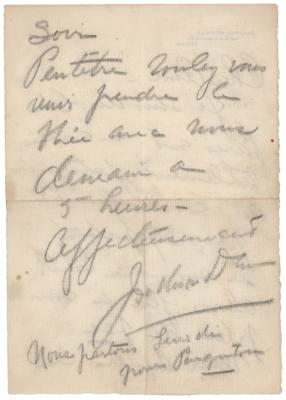 Soir
Peutêtre voulez vous
venir prendre le
thée avec nous
demain a
5 heures –
affectueusement
Nous partons Lundi
pour